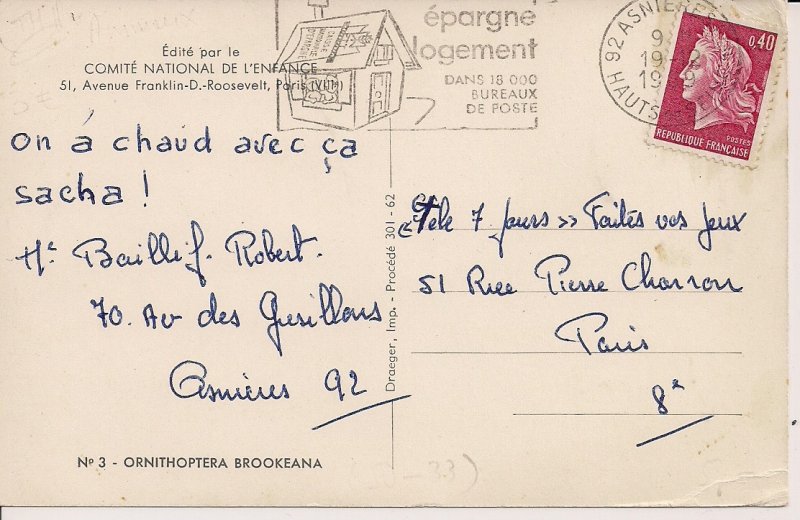 Édité par le
COMITÉ NATIONAL DE L'ENFANCE
51, Avenue Franklin-D.-Roosevelt, Paris (VIIIe)
épargne
logement
DANS 18 000
BUREAUX
DE POSTE
92 ASNIÈRES
HAUTS
0,40
POSTES
REPUBLIQUE FRANÇAISE
on a chaud avec ça
sacha !
Me Baillif. Robert.
70. Av des Gresillons
Asnières 92
Draeger, Imp. - Procédé 301 - 62
« Télé 7 Jours » Faites vos Jeux
51 Rue Pierre Charron
Paris
8e
No 3 - ORNITHOPTERA BROOKEANA